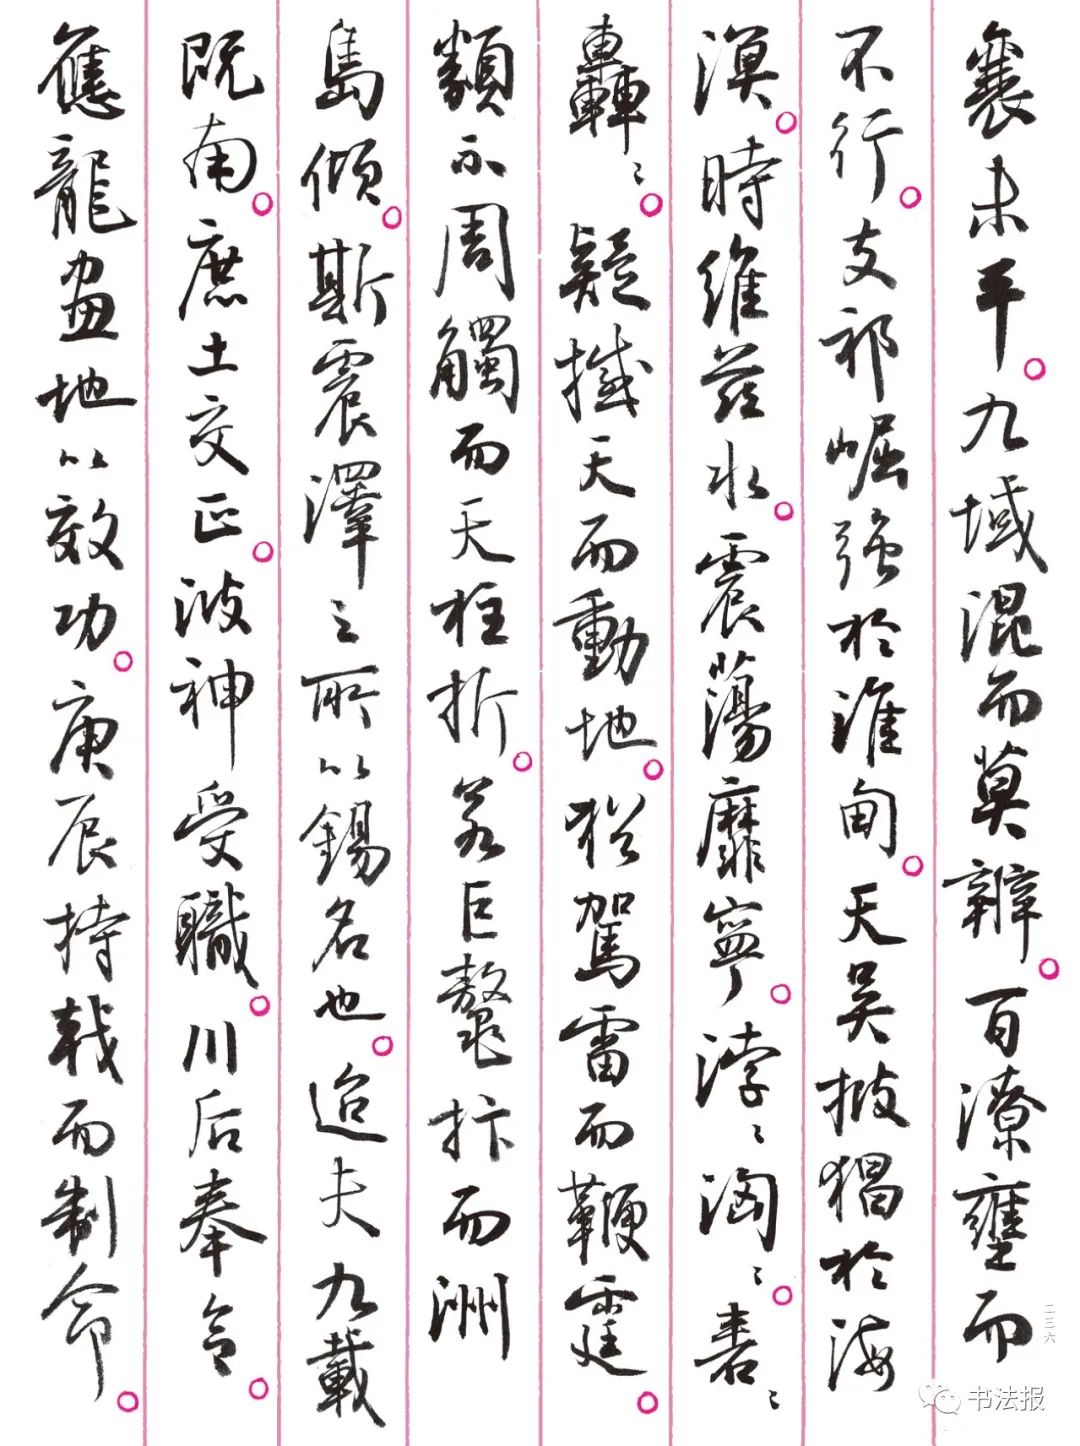 襄未平。九域混而莫辨。百潦壅而
不行。支祁崛强於淮甸。天吴披猖於海
漠。時維兹水。震蕩靡寧。浡〻洶〻。砉〻
轟〻。疑撼天而動地。猶駕雷而鞭霆
類不周觸而天柱折。若巨鼇抃而洲
島傾。斯震澤之所以錫名也。迨夫九載
既南。庶土交正。波神受職。川后奉令。
應龍畫地以效功。庚辰持戟而制命。
二三六
书法报